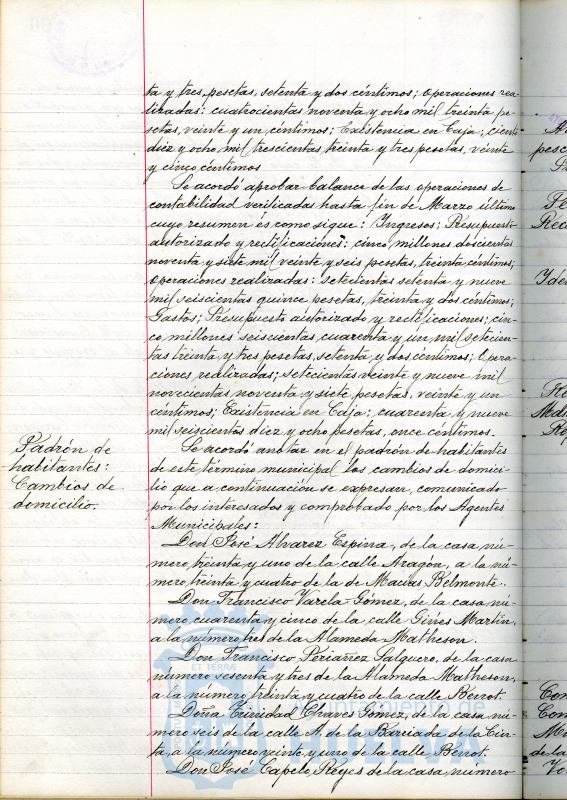 ta y tres pesetas, setenta y dos céntimos; operaciones rea-
lizadas: cuatrocientas noventa y ocho mil treinta pe-
setas, veinte y un céntimos; Existencia en Caja; ciento
diez y ocho mil trescientas treinta y tres pesetas, veinte
y cinco céntimos
Se acordó aprobar balance de las operaciones de
contabilidad verificadas hasta fin de Marzo último
cuyo resumen es como sigue: Ingresos; Presupuesto
autorizado y rectificaciones: cinco millones doscientas
noventa y siete mil veinte y seis pesetas, treinta céntimos;
operaciones realizadas: setecientas setenta y nueve
mil seiscientas quince pesetas, treinta y dos céntimos;
Gastos; Presupuesto autorizado y rectificaciones; cin-
co millones seiscientas cuarenta y un mil setecien-
tas treinta y tres pesetas, setenta y dos céntimos; Opera-
ciones realizadas; setecientas veinte y nueve mil
novecientas noventa y siete pesetas, veinte y un
céntimos; Existencia en Caja: cuarenta y nueve
mil seiscientas diez y ocho pesetas, once céntimos.
Padrón de
habitantes:
Cambios de
domicilio.
Se acordó anotar en el padrón de habitantes
de este término municipal los cambios de domici-
lio que a continuación se expresan, comunicado
por los interesados y comprobado por los Agentes
Municipales:
Don José Alvarez Espina, de la casa nú-
mero treinta y uno de la calle Aragón, a la nú-
mero treinta y cuatro de la de Macias Belmonte.
Don Francisco Varela Gómez, de la casa nú-
mero cuarenta y cinco de la calle Gines Martin,
a la número tres de la Alameda Matheson.
Don Francisco Periañez Salguero, de la casa
número sesenta y tres de la Alameda Matheson,
a la número treinta y cuatro de la calle Berrot.
Doña Trinidad Chaves Gómez, de la casa nú-
mero seis de la calle A. de la Barriada de la Cin-
ta, a la número veinte y uno de la calle Berrot.
Don José Capelo Reyes de la casa número
ET TERRÆ
Ayuntamiento de
HUELVA